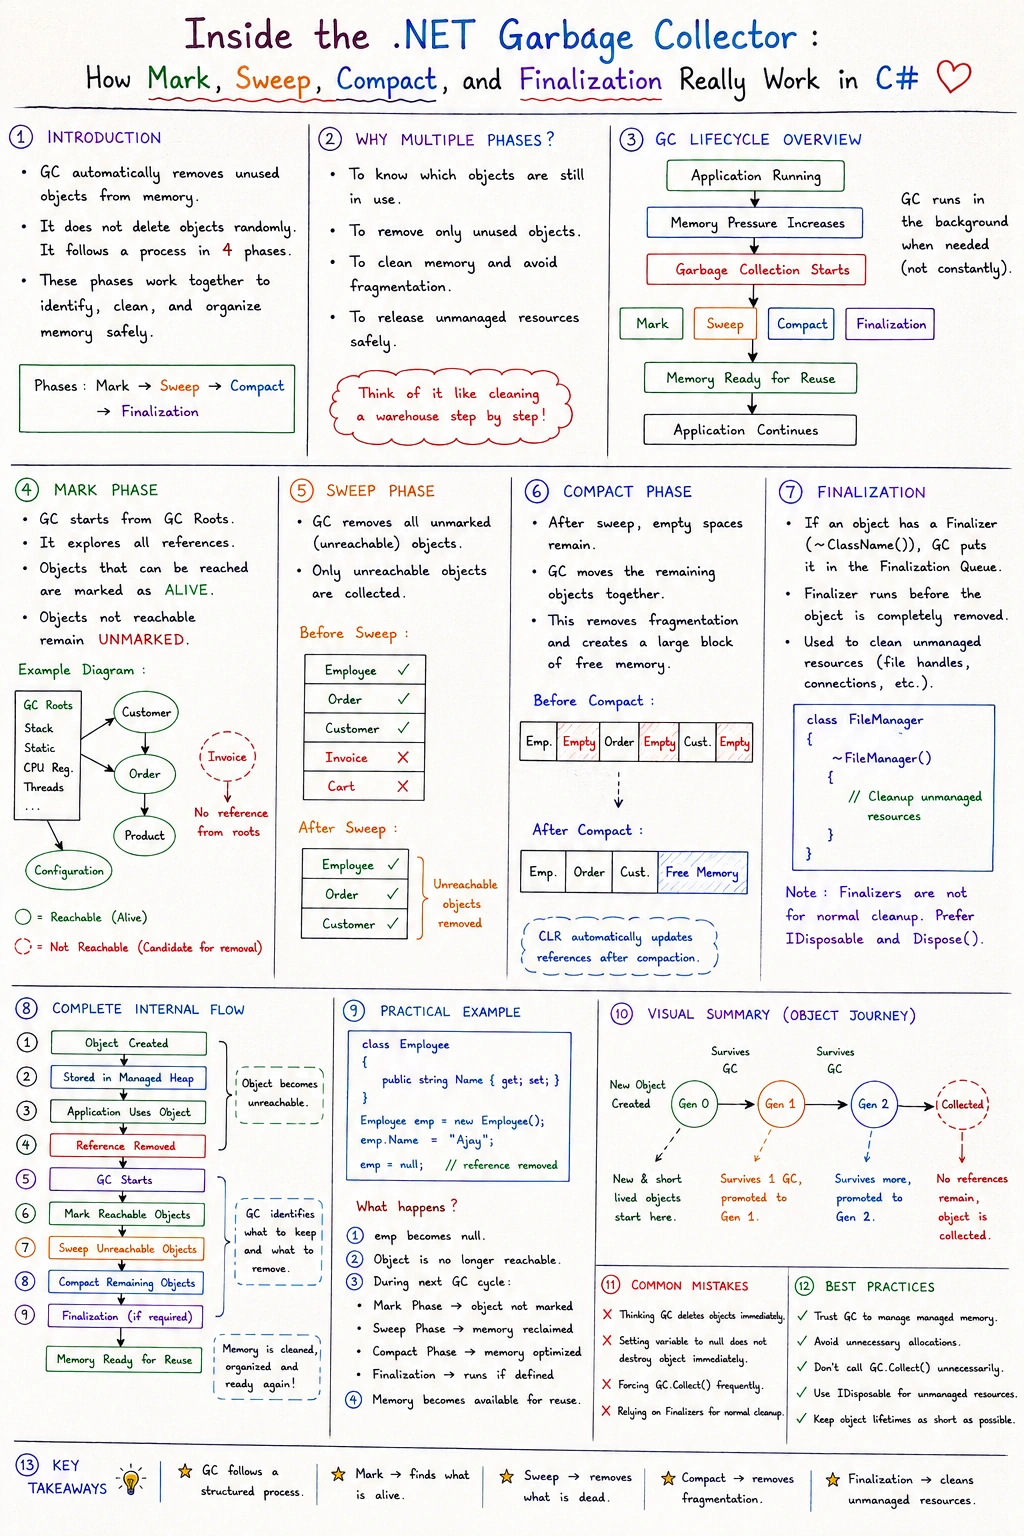 Inside the .NET Garbage Collector :
How Mark, Sweep, Compact, and Finalization Really Work in C#
1 INTRODUCTION
• GC automatically removes unused
objects from memory.
• It does not delete objects randomly.
It follows a process in 4 phases.
• These phases work together to
identify, clean, and organize
memory safely.
Phases : Mark → Sweep → Compact
→ Finalization
2 WHY MULTIPLE PHASES?
• To know which objects are still
in use.
• To remove only unused objects.
• To clean memory and avoid
fragmentation.
• To release unmanaged resources
safely.
Think of it like cleaning
a warehouse step by step!
3 GC LIFECYCLE OVERVIEW
Application Running
Memory Pressure Increases
Garbage Collection Starts
Mark
Sweep
Compact
Finalization
Memory Ready for Reuse
Application Continues
GC runs in
the background
when needed
(not constantly).
4 MARK PHASE
• GC starts from GC Roots.
• It explores all references.
• Objects that can be reached
are marked as ALIVE.
• Objects not reachable
remain UNMARKED.
Example Diagram :
GC Roots
Stack
Static
CPU Reg.
Threads
...
Customer
Order
Product
Configuration
Invoice
No reference
from roots
= Reachable (Alive)
= Not Reachable (Candidate for removal)
5 SWEEP PHASE
• GC removes all unmarked
(unreachable) objects.
• Only unreachable objects
are collected.
Before Sweep :
Employee ✓
Order ✓
Customer ✓
Invoice ✗
Cart ✗
After Sweep :
Employee ✓
Order ✓
Customer ✓
Unreachable
objects
removed
6 COMPACT PHASE
• After sweep, empty spaces
remain.
• GC moves the remaining
objects together.
• This removes fragmentation
and creates a large block
of free memory.
Before Compact :
Emp. Empty Order Empty Cust. Empty
After Compact :
Emp. Order Cust. Free Memory
CLR automatically updates
references after compaction.
7 FINALIZATION
• If an object has a Finalizer
(~ClassName()), GC puts
it in the Finalization Queue.
• Finalizer runs before the
object is completely removed.
• Used to clean unmanaged
resources (file handles,
connections, etc.).
class FileManager
{
~FileManager()
{
// Cleanup unmanaged
resources
}
}
Note : Finalizers are not
for normal cleanup. Prefer
IDisposable and Dispose().
8 COMPLETE INTERNAL FLOW
1 Object Created
2 Stored in Managed Heap
3 Application Uses Object
4 Reference Removed
5 GC Starts
6 Mark Reachable Objects
7 Sweep Unreachable Objects
8 Compact Remaining Objects
9 Finalization (if required)
Memory Ready for Reuse
Object becomes
unreachable.
GC identifies
what to keep
and what to
remove.
Memory is cleaned,
organized and
ready again!
9 PRACTICAL EXAMPLE
class Employee
{
public string Name { get; set; }
}
Employee emp = new Employee();
emp.Name = "Ajay";
emp = null; // reference removed
What happens ?
1 emp becomes null.
2 Object is no longer reachable.
3 During next GC cycle:
• Mark Phase → object not marked
• Sweep Phase → memory reclaimed
• Compact Phase → memory optimized
• Finalization → runs if defined
4 Memory becomes available for reuse.
10 VISUAL SUMMARY (OBJECT JOURNEY)
New Object
Created
Survives
GC
Survives
GC
Gen 0
Gen 1
Gen 2
Collected
New & short
lived objects
start here.
Survives 1 GC,
promoted to
Gen 1.
Survives more,
promoted to
Gen 2.
No references
remain,
object is
collected.
11 COMMON MISTAKES
✗ Thinking GC deletes objects immediately.
✗ Setting variable to null does not
destroy object immediately.
✗ Forcing GC.Collect() frequently.
✗ Relying on Finalizers for normal cleanup.
12 BEST PRACTICES
✓ Trust GC to manage managed memory.
✓ Avoid unnecessary allocations.
✓ Don't call GC.Collect() unnecessarily.
✓ Use IDisposable for unmanaged resources.
✓ Keep object lifetimes as short as possible.
13 KEY
TAKEAWAYS
GC follows a
structured process.
Mark → finds what
is alive.
Sweep → removes
what is dead.
Compact → removes
fragmentation.
Finalization → cleans
unmanaged resources.